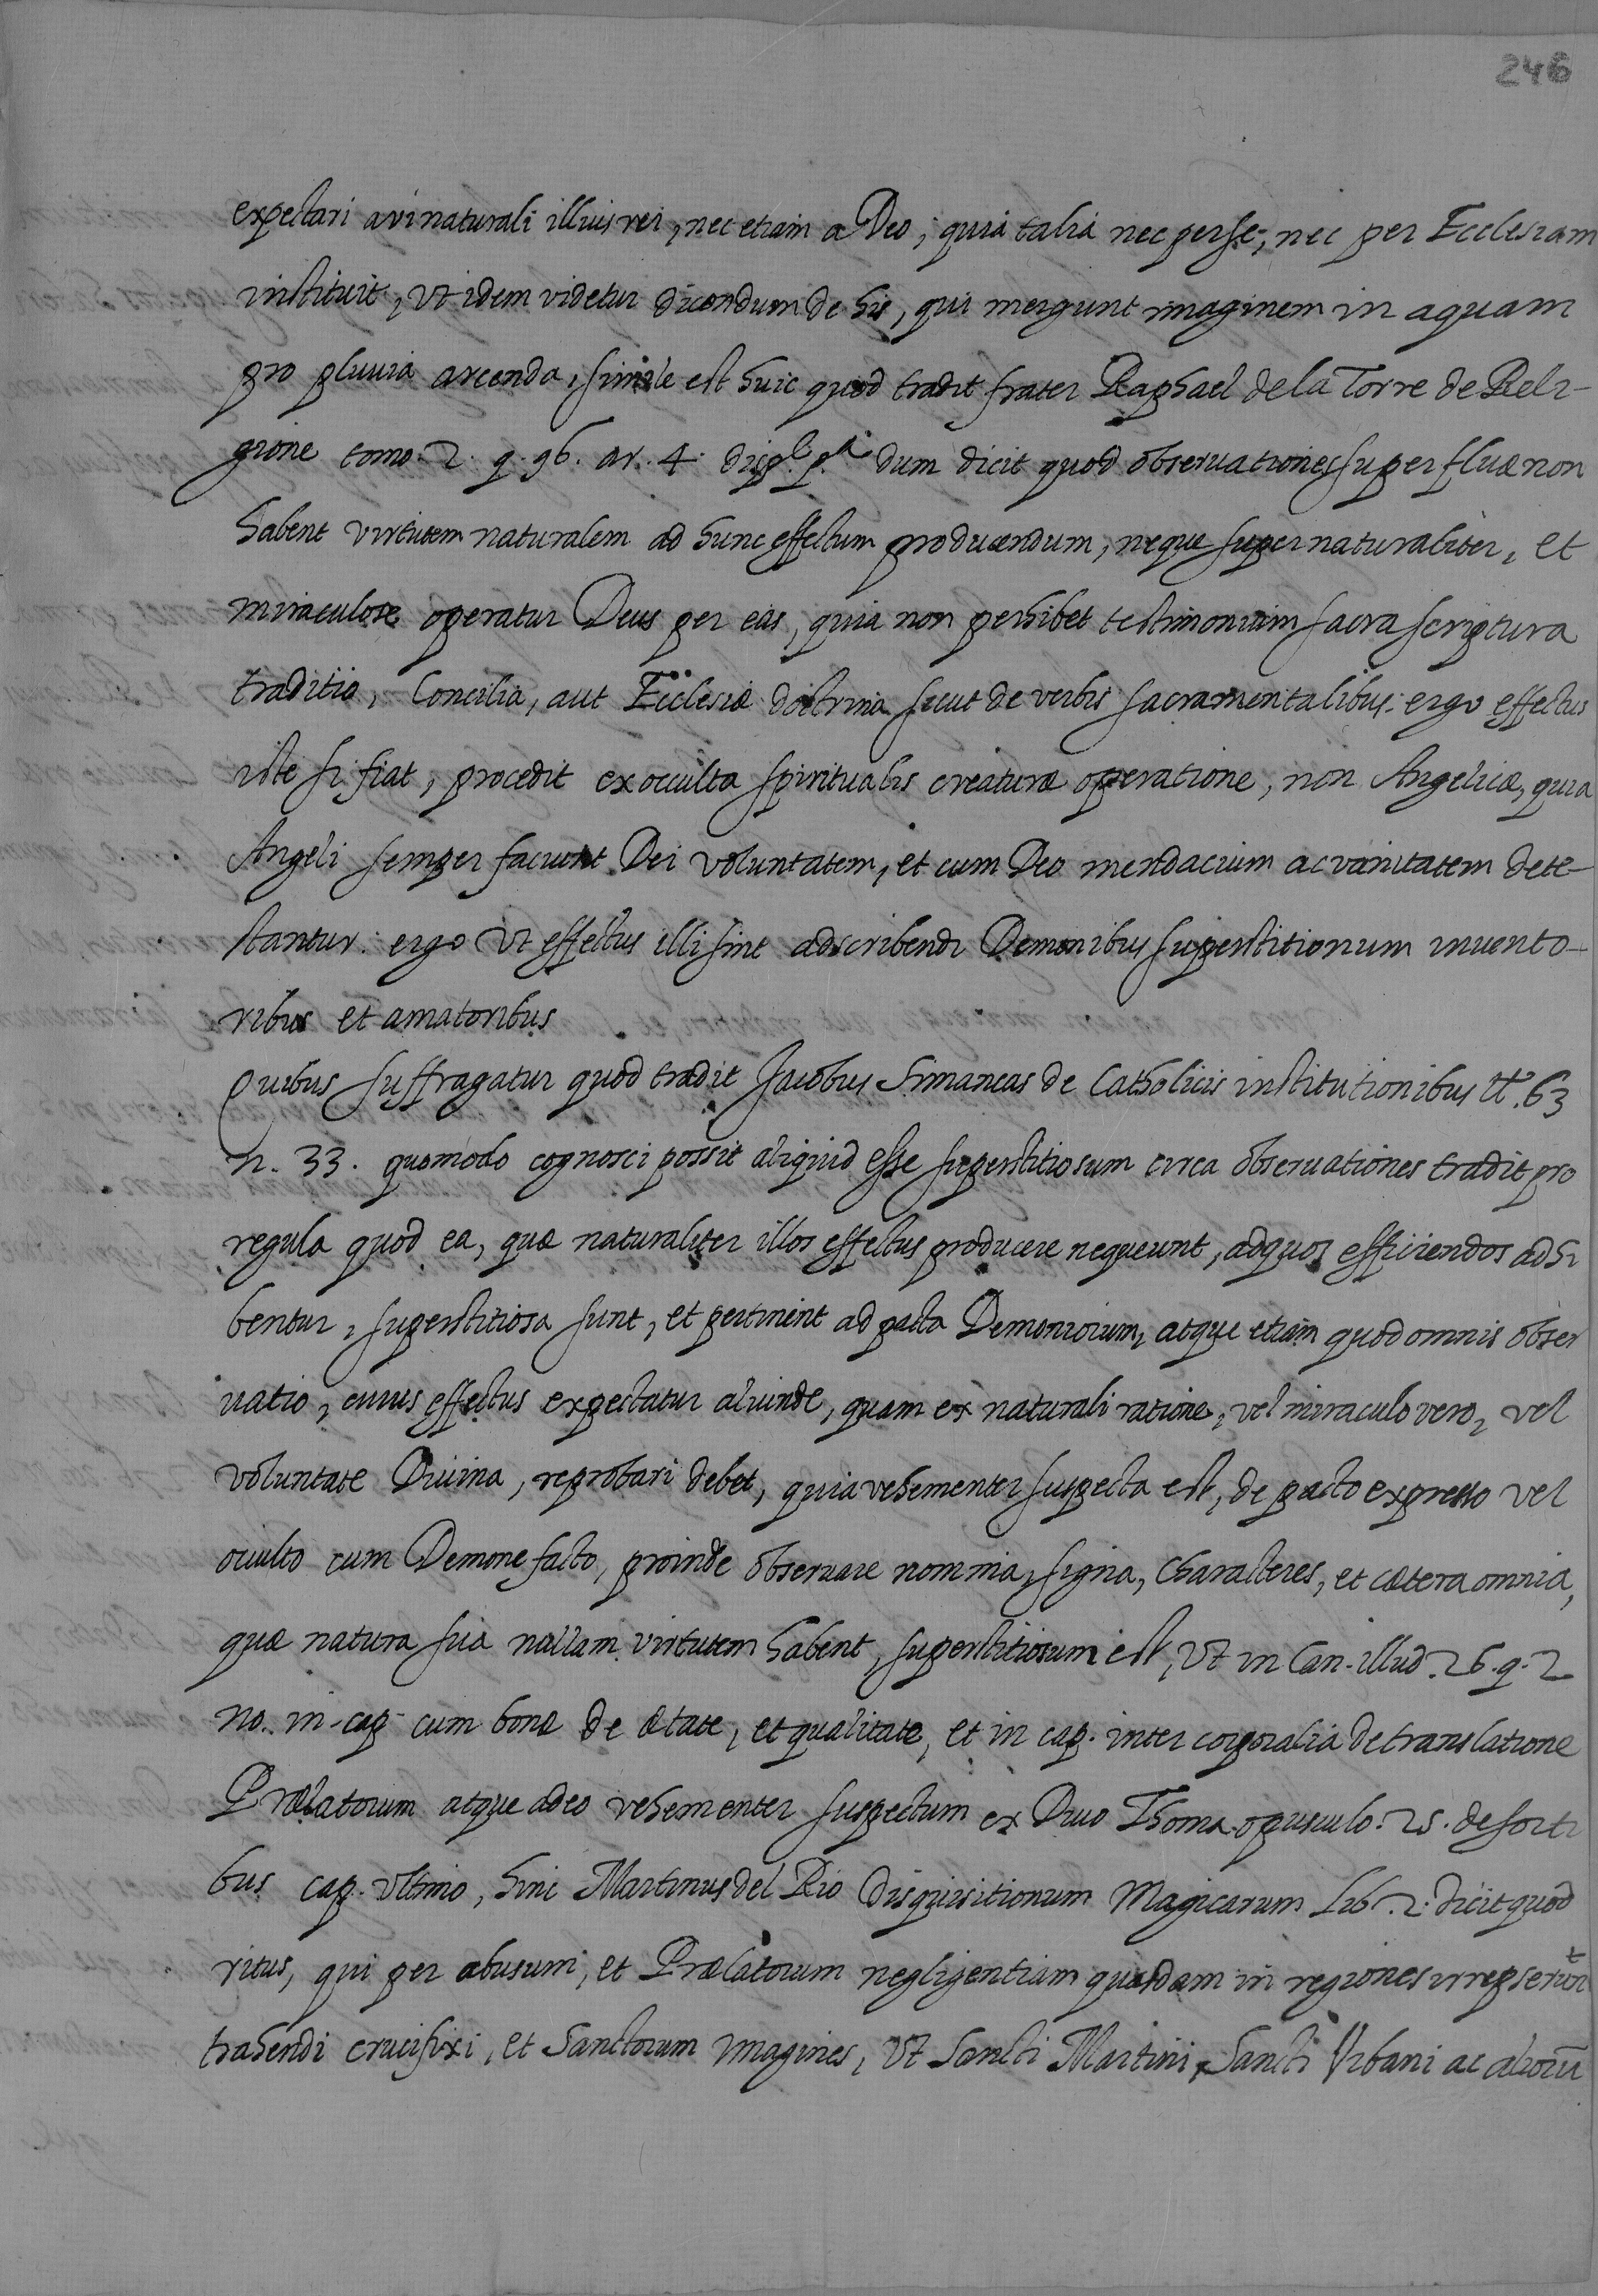 246
expectari a vi naturali illius rei, nec etiam a Deo; quia talia nec per se, nec per Ecclesiam
instituit, vt idem videtur dicendum de his, qui mergunt imaginem in aquam
pro pluuia arcenda, simile est huic quod tradit frater Raphael de la Torre de Reli-
gione tomo. 2. q. 96. ar. 4. disp. p.ª dum dicit quod obseruationes superfluæ non
habent virtutem naturalem ad hunc effectum producendum, neque supernaturaliter, et
miraculose operatur Deus per eas, quia non perhibet testimonium sacra scriptura
traditio, Concilia, aut Ecclesiæ doctrina sicut de verbis sacramentalibus: ergo effectus
iste si fiat, procedit ex occulta spiritualis creaturæ operatione, non Angelicæ, quia
Angeli semper faciunt Dei voluntatem, et cum Deo mendacium ac vanitatem dete-
stantur: ergo vt effectus illi sint adscribendi Demonibus superstitionum inuento-
ribus et amatoribus
Quibus suffragatur quod tradit Jacobus Simancas de Catholicis institutionibus tt.º 63
n. 33. quomodo cognosci possit aliquid esse superstitiosum circa obseruationes tradit pro
regula quod ea, quæ naturaliter illos effectus producere nequeunt, ad quos efficiendos adhi
bentur, superstitiosa sunt, et pertinent ad pacta Demoniorum, atque etiam quod omnis obser
uatio, cuius effectus expectatur aliunde, quam ex naturali ratione, vel miraculo vero, vel
voluntate Diuina, reprobari debet, quia vehementer suspecta est, de pacto expresso vel
oculto cum Demone facto, proinde obseruare nomina, signa, characteres, et cætera omnia,
quæ natura sua nullam virtutem habent, superstitiosum est, vt in Can. illud. 26. q. 2
no. in cap. cum bonæ de ætate, et qualitate, et in cap. inter corporalia de translatione
Prælatorum atque adeo vehementer suspectum ex Diuo Thoma opusculo. 25. de sorti
bus cap. vltimo, hinc Martinus del Rio Disquisitionum Magicarum Lib. 2. dicit quod
ritus, qui per abusum, et Prælatorum negligentiam quasdam in regiones irrepserunt
trahendi crucifixi, et Sanctorum imagines, vt Sancti Martini, Sancti Vrbani ac aliorū